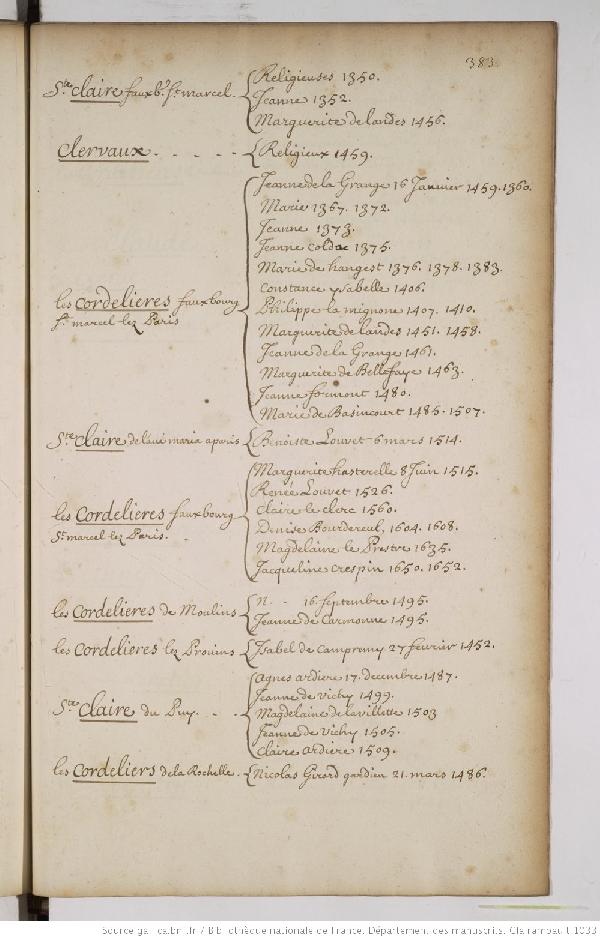 383.
Ste Claire fauxb.g St marcel. Religieuses 1350.
Jeanne 1352.
Marguerite de landes 1456.
Clervaux. - - - - Religieux 1459.
Jeanne de la Grange 16 Janvier 1459. 1360.
Marie 1367. 1372.
Jeanne 1373.
Jeanne 1375.
Marie de hangest 1376. 1378. 1383.
Constance ysabelle 1406.
les Cordelieres fauxbourg
St marcel lez Paris
Philippe la mignone 1407. 1410.
Marguerite de landes 1451. 1458.
Jeanne de la Grange 1461.
Marguerite de Bellefaye 1463.
Jeanne formont 1480.
Marie de Basincourt 1485. 1507.
Ste Claire de l'avé maria a paris Benoiste Louvet 6 mars 1514.
Marguerite hasterelle 8 Juin 1515.
Renée Louvet 1526.
les Cordelieres fauxbourg
St marcel lez Paris.
Claire le clerc 1560.
Denise Bourdereul, 1604. 1608.
Magdelaine le Prestre 1635.
Jacqueline Crespin 1650. 1652.
les Cordelieres de Moulins N. - - 16 septembre 1495.
Jeanne de Carmonne 1495.
les Cordelieres lez Provins Isabel de 27 fevrier 1452.
Agnes ardiere 17. decembre 1487.
Jeanne de Vichy 1499.
Ste Claire du Puy. - - Magdelaine de la villette 1503
Jeanne de Vichy 1505.
Claire ardiere 1509.
les Cordeliers de la Rochelle. Nicolas Girard gardien 21. mars 1486.
Source gallica.bnf.fr / Bibliothèque nationale de France. Département des manuscrits. Clairambault 1033